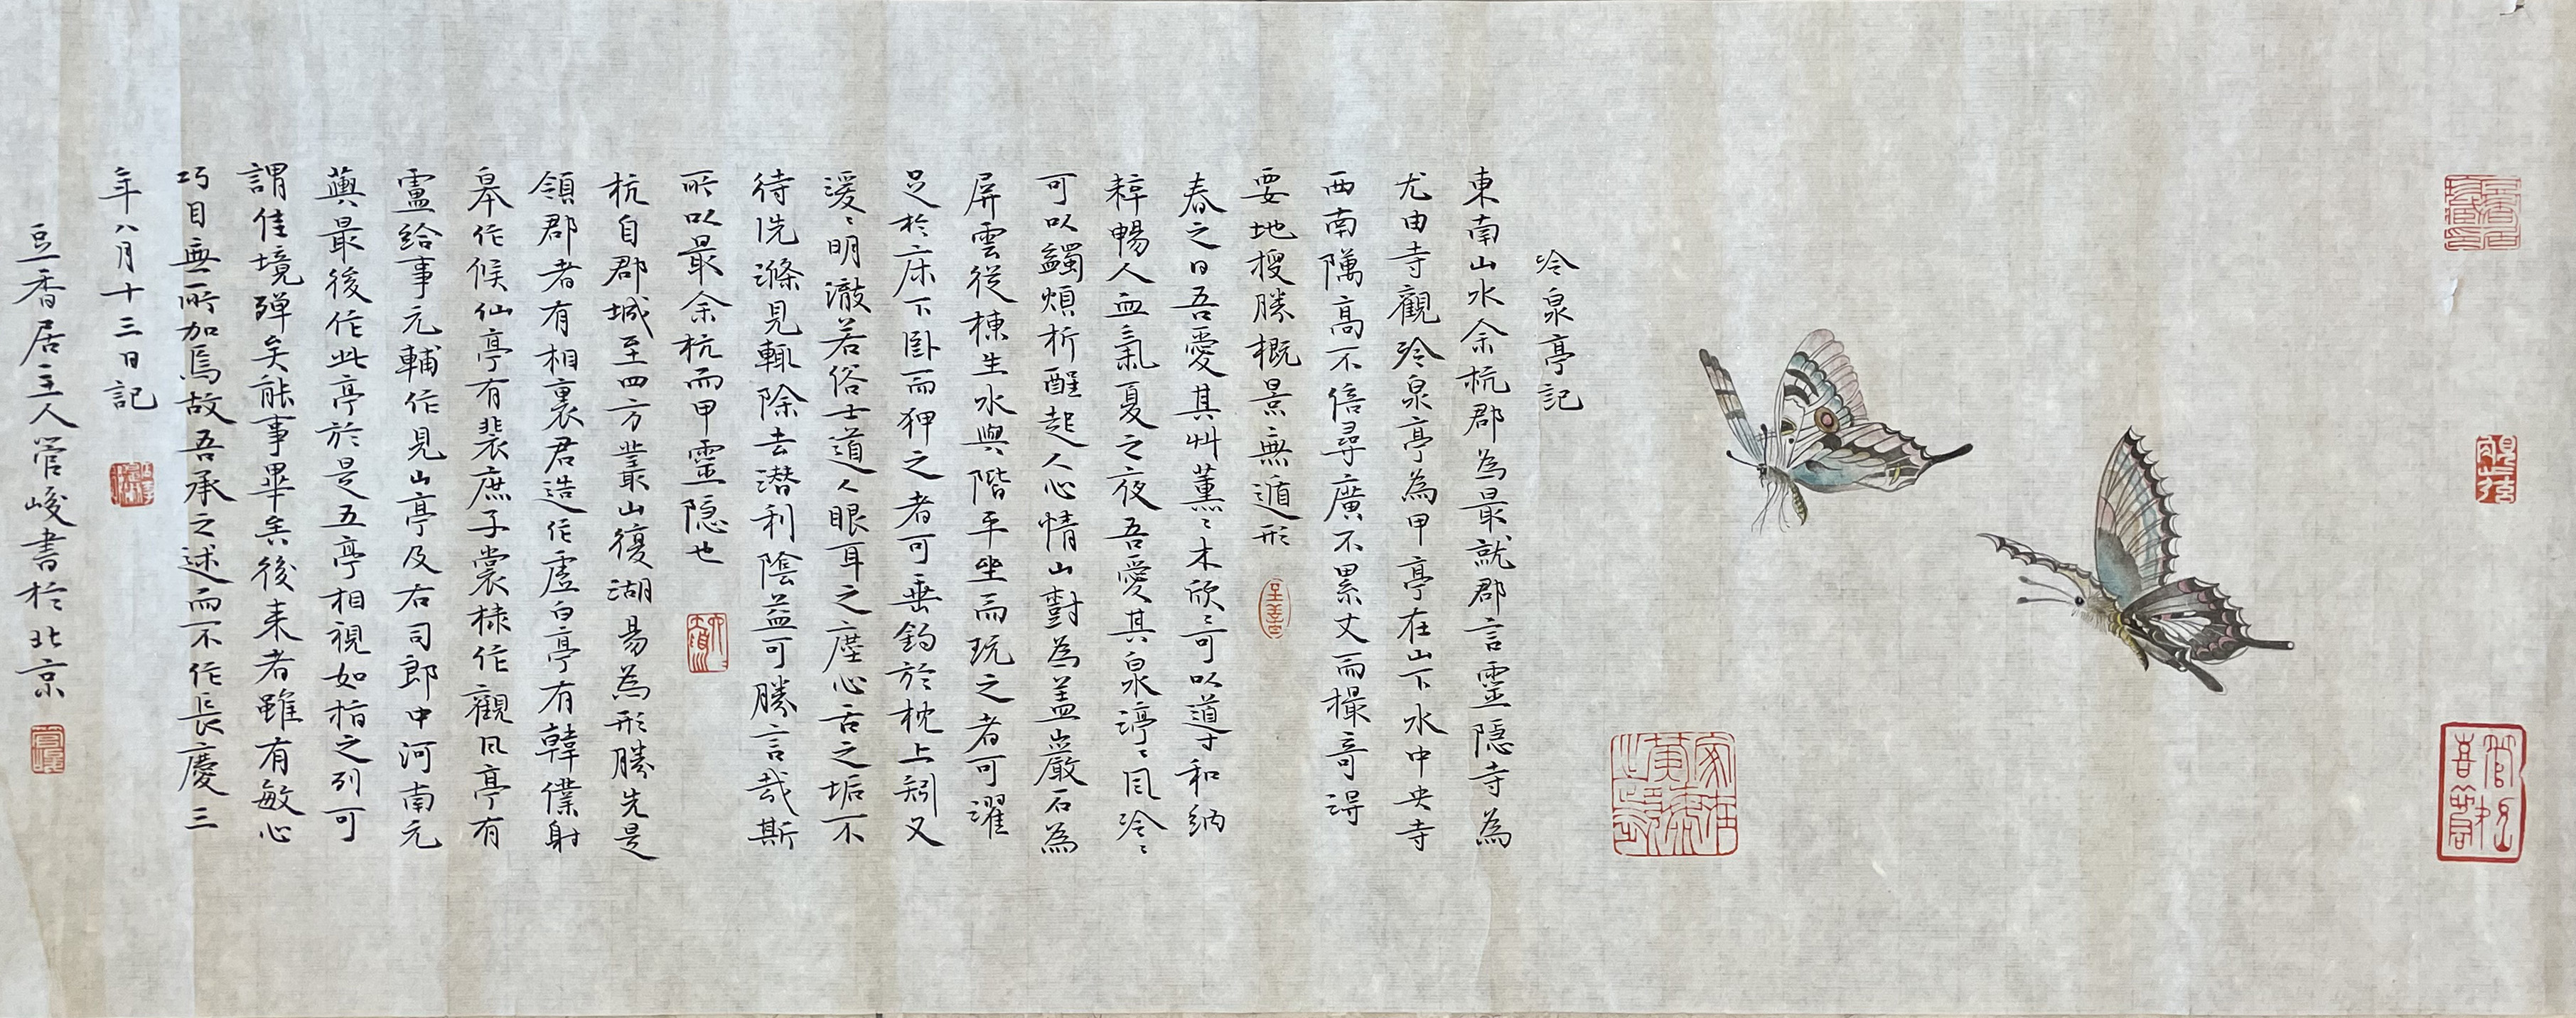 冷泉亭記
東南山水余杭郡為最就郡言靈隱寺為
尤由寺觀冷泉亭為甲亭在山下水中央寺
西南隅高不倍尋廣不累丈而撮奇得
要地搜勝概景無遁形
春之日吾愛其艸薰〻木欣〻可以導和納
粹暢人血氣夏之夜吾愛其泉渟〻風冷〻
可以蠲煩析酲起人心情山樹為蓋巖石為
屏雲從棟生水與階平坐而玩之者可濯
足於床下臥而狎之者可垂釣於枕上矧又
潺〻明澈若俗士道人眼耳之塵心舌之垢不
待洗滌見輒除去潜利陰益可勝言哉斯
所以最余杭而甲靈隱也
杭自郡城至四方叢山復湖易為形勝先是
領郡者有相裏君造作虛白亭有韓僕射
皋作候仙亭有裴庶子棠棣作觀風亭有
盧給事元輔作見山亭及右司郎中河南元
藇最後作此亭於是五亭相視如指之列可
謂佳境殫矣能事畢矣後來者雖有敏心
巧目無所加焉故吾承之述而不作長慶三
年八月十三日記
豆香居主人管峻書於北京